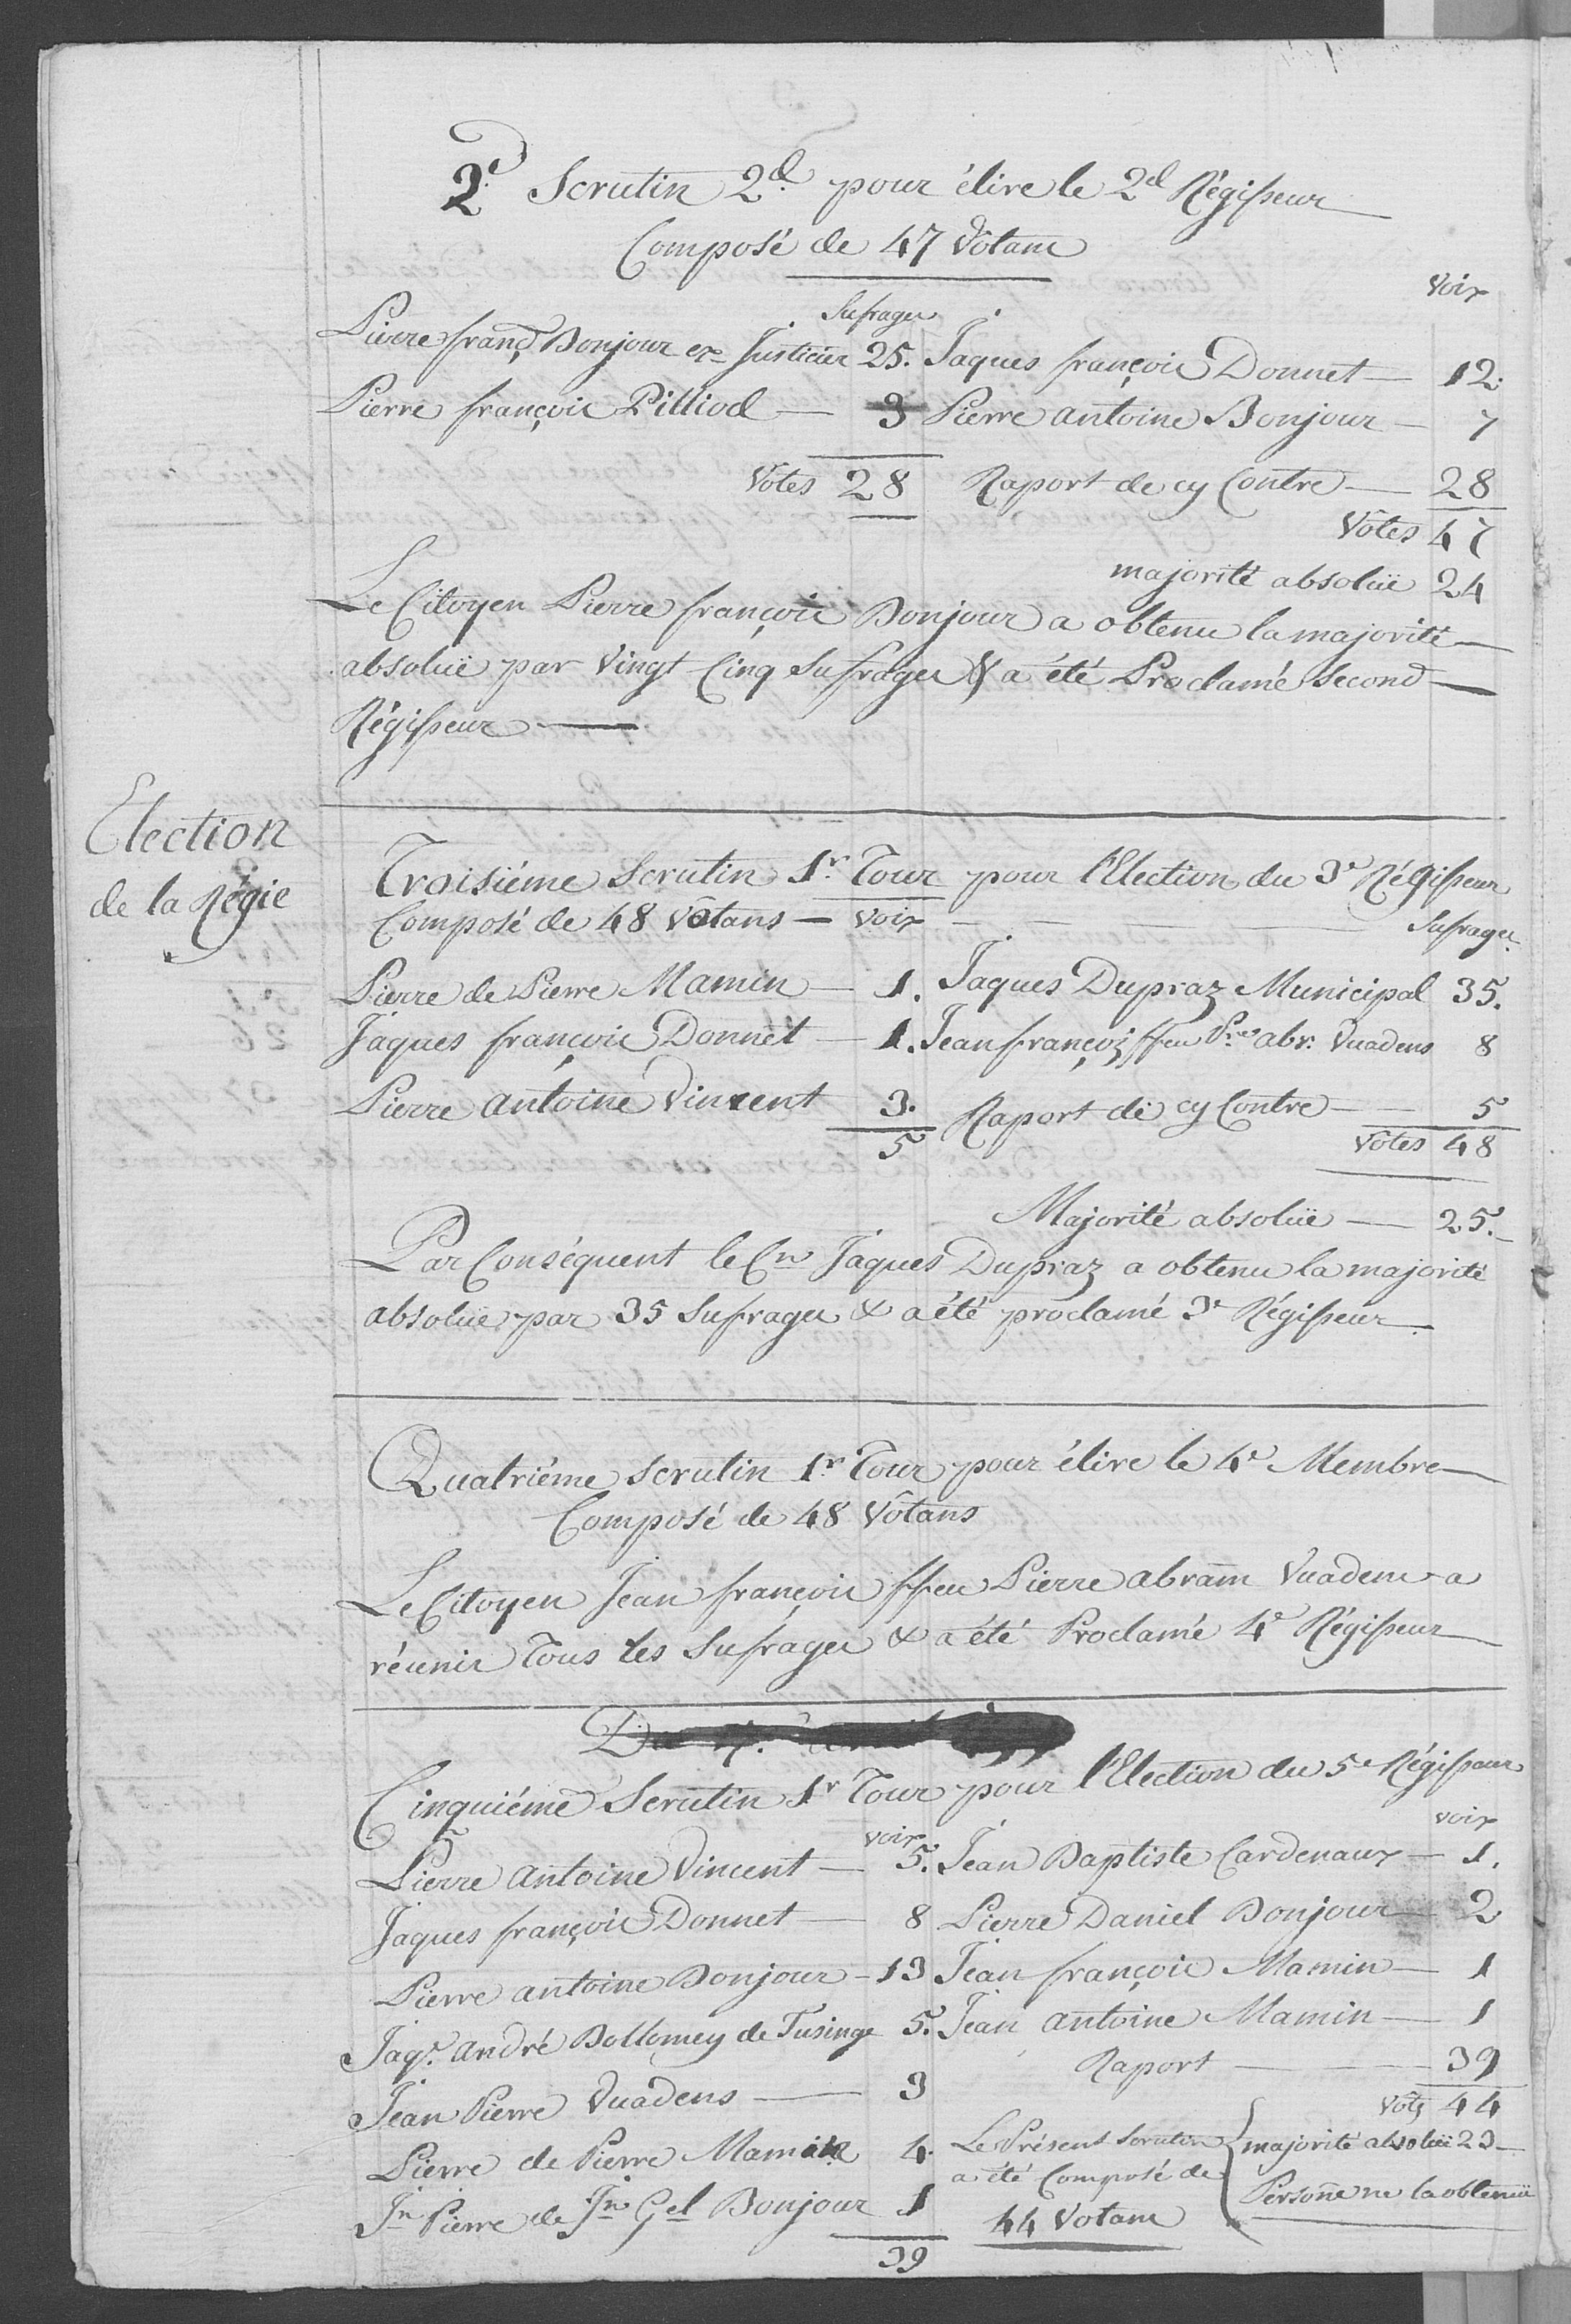 2.e Scrutin 2.d pour élire le 2.d Régisseur
Composé de 47 Vôtans
Sufrages
Voix
Pierre franç. Bonjour ex Justicier 25. Jaques françois Donnet — 12.
Pierre françois Pilliod — 3 Pierre antoine Bonjour — 7
Votes 28 Raport de cy Contre — 28
Vôtes 47
majorité absolüe 24
Le Citoyen Pierre françois Bonjour a obtenu la majorité
absolüe par Vingt Cinq Sufrages & a été Proclamé Second
Régisseur
Election
de la Régie
Troisiéme Scrutin 1.r Tour pour l'Election du 3.e Régisseur
Composé de 48 Vôtans — voix — Sufrages
Pierre de Pierre Mamin — 1. Jaques Dupraz Municipal 35.
Jaques françois Donnet — 1. Jean françois ffeu P.re abr. Vuadens 8
Pierre antoine Vincent 3. Raport de cy Contre — 5
5 Vôtes 48
Majorité absolüe — 25.
Par Conséquent le C.n Jaques Dupraz a obtenu la majorité
absolüe par 35 Sufrages & a été proclamé 3.e Régisseur
Quatriéme Scrutin 1.r Tour pour élire le 4.e Membre
Composé de 48 Vôtans
Le Citoyen Jean françois ffeu Pierre abram Vuadens a
réunis Tous les Sufrages & a été Proclamé 4.e Régisseur
Cinquiéme Scrutin 1.r Tour pour l'Election du 5.e Régisseur
voix
voix
Pierre Antoine Vincent — 5. Jean Baptiste Cardenaux — 1.
Jaques françois Donnet — 8 Pierre Daniel Bonjour — 2
Pierre antoine Bonjour — 13 Jean françois Mamin — 1
Jaq.s André Bollomey de Tusinge 5. Jean antoine Mamin — 1
Raport — 39
Jean Pierre Vuadens — 3
Vôts 44
Pierre de Pierre Mamin 4. Le Présent Scrutin majorité absolüe 23
a été Composé de Persone ne la obtenüe
J.n Pierre de J.n G.el Bonjour 1 44 Votans
39